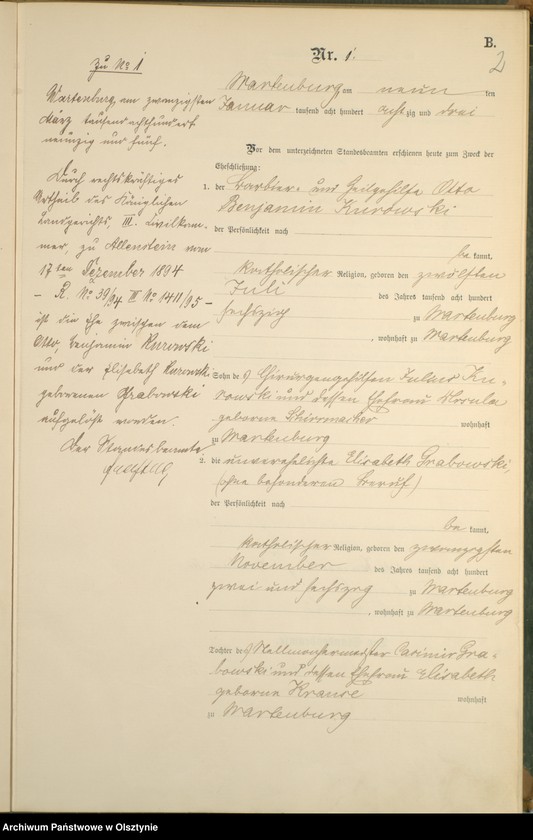 B.
2
Nr. 1.
Wartenburg am neun ten
Januar tausend acht hundert achtzig und drei
Vor dem unterzeichneten Standesbeamten erschienen heute zum Zweck der
Eheschließung:
1. der Barbier- und Heilgehilfe Otto
Benjamin Kurowski
der Persönlichkeit nach
be kannt,
katholischer Religion, geboren den zwölften
Juli des Jahres tausend acht hundert
sechszig zu Wartenburg
, wohnhaft zu Wartenburg
Sohn des Chirurgengehilfen Julius Ku-
rowski und dessen Ehefrau Ursula
geborne Schirrmacher wohnhaft
zu Wartenburg
2. die unverehelichte Elisabeth Grabowski,
(ohne besonderen Beruf)
der Persönlichkeit nach
be kannt,
katholischer Religion, geboren den zwanzigsten
November des Jahres tausend acht hundert
zwei und sechszig zu Wartenburg
, wohnhaft zu Wartenburg
Tochter des Stellmachermeister Casimir Gra-
bowski und dessen Ehefrau Elisabeth
geborne Krause wohnhaft
zu Wartenburg
Zu No 1
Wartenburg, am zwanzigsten
März tausend achthundert
neunzig und fünf.
Durch rechtskräftiges
Urtheil des Königlichen
Landgerichts, III. Civilkam-
mer, zu Allenstein vom
17ten Dezember 1894
- R. No 39/94 III No 1411/95 -
ist die Ehe zwischen dem
Otto, Benjamin Kurowski
und der Elisabeth Kurowski
geborenen Grabowski
aufgelöst worden.
Der Standesbeamte
Archiwum Państwowe w Olsztynie